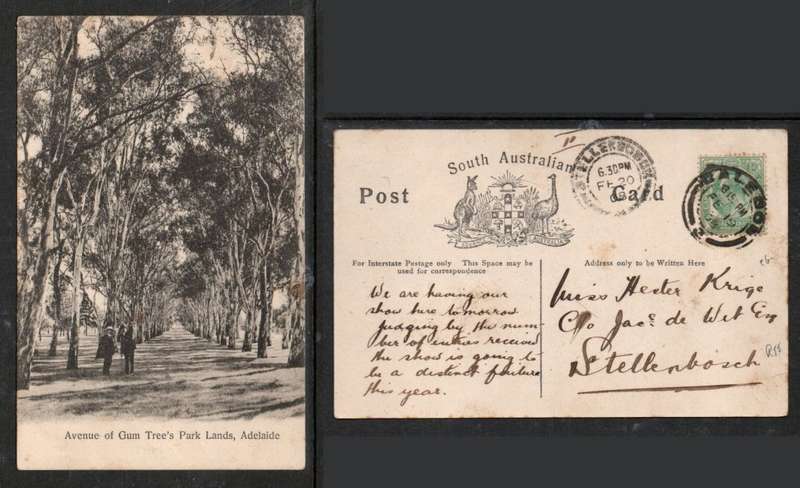 Avenue of Gum Tree's Park Lands, Adelaide
South Australian
Post Card
STELLENBOSCH
6.30PM
FE 20
For Interstate Postage only This Space may be
used for correspondence
Address only to be Written Here
We are having our
show here tomorrow
judging by the num-
ber of entries received
the show is going to
be a distinct failure
this year.
Miss Hester Krige
C/o Jacs de Wet Esq
Stellenbosch
R55